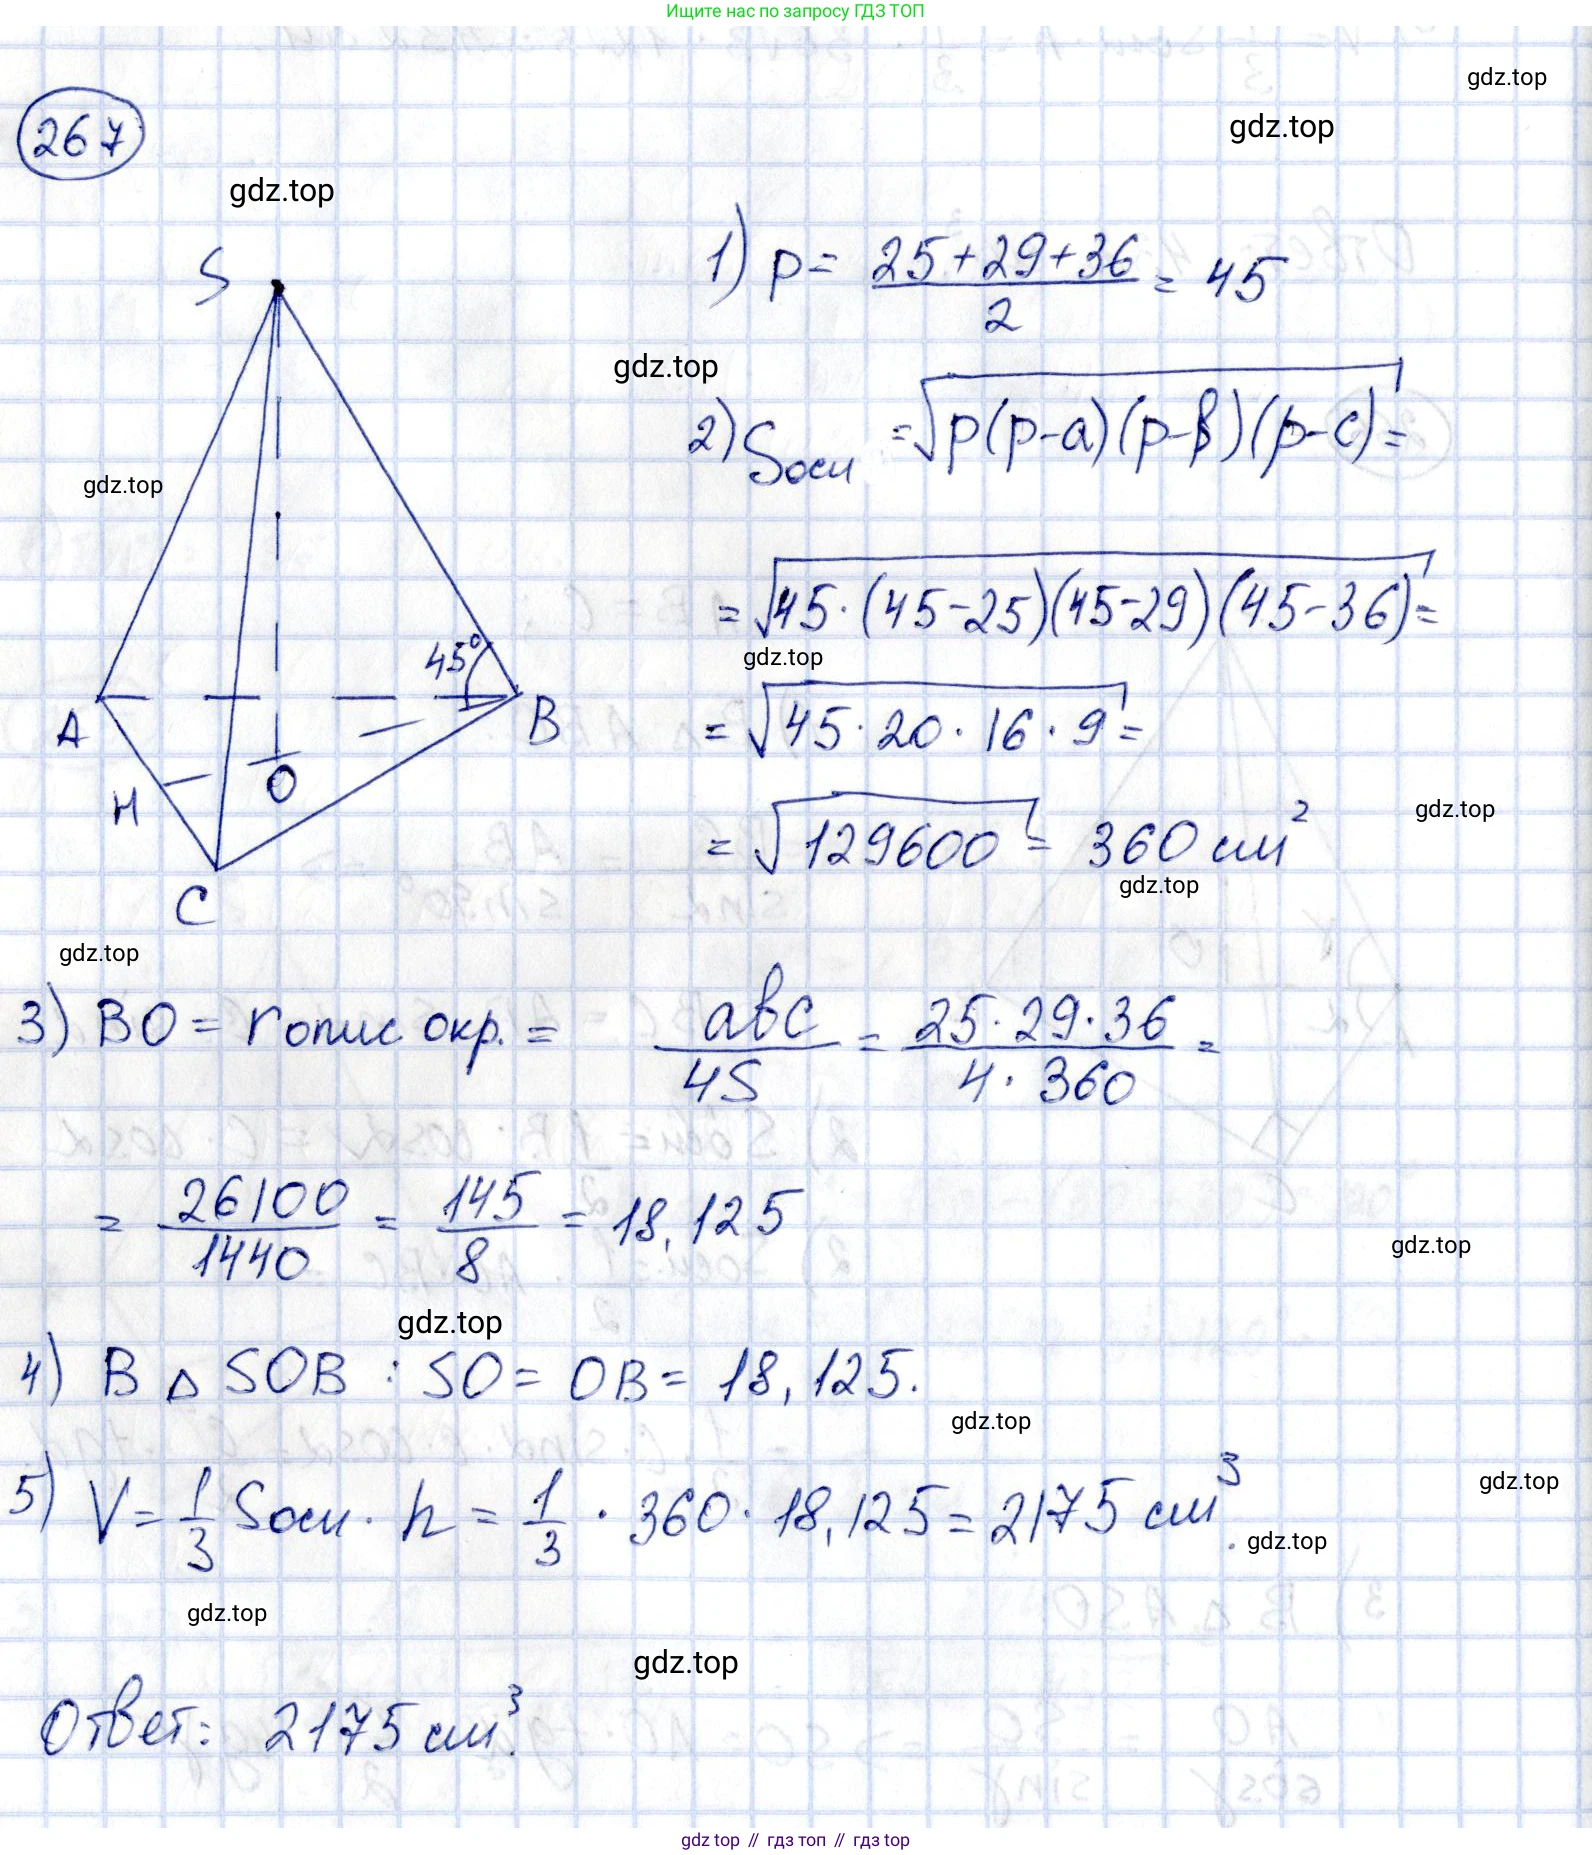 Ищите нас по запросу ГДЗ ТОП
gdz.top
gdz.top
267
gdz.top
S
1) p = (25+29+36)/2 = 45
gdz.top
2) Sосн = √(p(p-a)(p-b)(p-c)) =
gdz.top
= √(45·(45-25)(45-29)(45-36)) =
gdz.top
45°
A
B
= √(45·20·16·9) =
O
H
gdz.top
= √129600 = 360 см²
gdz.top
C
gdz.top
3) BO = r опис окр. = abc/4S = (25·29·36)/(4·360) =
= 26100/1440 = 145/8 = 18,125
gdz.top
gdz.top
4) В △ SOB : SO = OB = 18,125.
gdz.top
5) V = 1/3 Sосн · h = 1/3 · 360 · 18,125 = 2175 см³.
gdz.top
gdz.top
gdz.top
gdz.top
Ответ: 2175 см³.
gdz top // гдз топ // gdz top